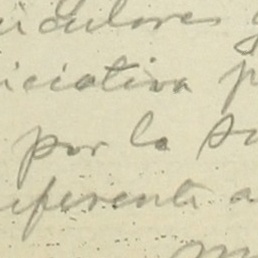 iculares
iciativa p
por la su
referente a